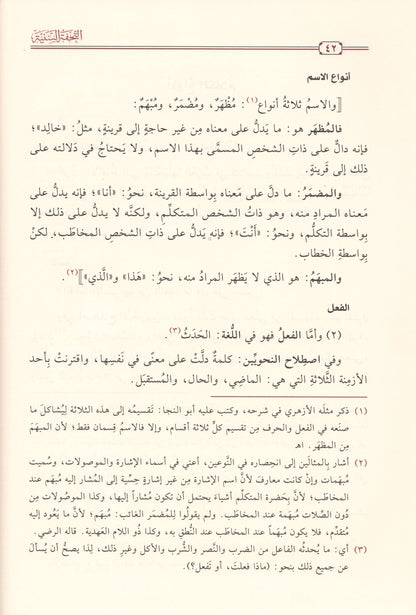 التحفة السنية
٤٢
أنواع الاسم
[والاسمُ ثلاثةُ أنواعٍ(١): مُظْهَرٌ، ومُضْمَرٌ، ومُبْهَمٌ:
فالمُظهَر هو: ما يَدلُّ على معناه مِن غير حاجةٍ إلى قرينةٍ، مثلُ: «خالِد»؛
فإنه تدلُّ على ذاتِ الشخصِ المسمى بهذا الاسم، ولا يَحتاجُ في دَلالته على
ذلك إلى قَرينةٍ.
والمضمَرُ: ما دلَّ على مَعناه بِواسطة القَرينة، نحوُ: «أنا»؛ فإنه يدلُّ على
مَعناه المرادِ منه، وهو ذاتُ الشخصِ المتكلِّم، ولكنَّه لا يدلُّ على ذلك إلا
بِواسطة التكلُّم، ونحوُ: «أَنْتَ»؛ فإنهُ يَدلُّ على ذاتِ الشخصِ المخاطَب، لكنْ
بِوَاسطةِ الخطاب.
والمبهَمُ: هو الذي لا يَظهَر المرادُ منه، نحوُ: «هَذا» و«الَّذي»](٢).
الفعل
(٢) وأمَّا الفعلُ فهو في اللُّغة: الحَدَثُ(٣).
وفي اصطِلاح النحويِّين: كلمةٌ دلَّتْ على معنًى في نَفسِها، واقترنتْ بِأحد
الأزمِنة الثَّلاثةِ التي هي: الماضِي، والحال، والمُستقبَل.
(١) ذكر مثلَه الأزهري في شرحه، وكتب عليه أبو النجا: تَقسيمُه إلى هذه الثلاثةِ لِيُشاكل ما
صنَعه في الفعل والحرف مِن تقسيم كلٍّ ثلاثة أقسام، وإلا فالاسمُ قِسمان فقط؛ لأن المبهَمَ
مِن المظهَر. اهـ
(٢) أشار بِالمثالَين إلى انحِصاره في النَّوعين، أعني في أسماء الإشارة والموصولات، وسُميت
مُبهَمات وإنْ كانت معارفَ لأنَّ اسم الإشارةِ مِن غير إشارةٍ حِسِّية إلى المُشار إليه مُبهَم عند
المخاطَب؛ لأنَّ بِحَضرة المتكلِّم أشياءَ يحتمل أن تكونَ مُشاراً إليها، وكذا الموصُولات مِن
دون الصِّلات مُبهَمة عند المخاطَب. ولم يقولُوا لِلمُضمَر الغائبِ: مُبهَم؛ لأنَّ ما يَعود إليه
مُتقدِّم، فلا يكون مُبهَماً عند المخاطَب عند النُّطق به، وكذا ذو اللام العَهدية. قاله الرضي.
(٣) أي: ما يُحدثُه الفاعل من الضرب والنَّصر والشُّرب والأكل وغيرِ ذلك، لِذا يصحُّ أن يُسألَ
عن جميع ذلك بنحوِ: (ماذا فعلتَ، أو تَفعل؟).